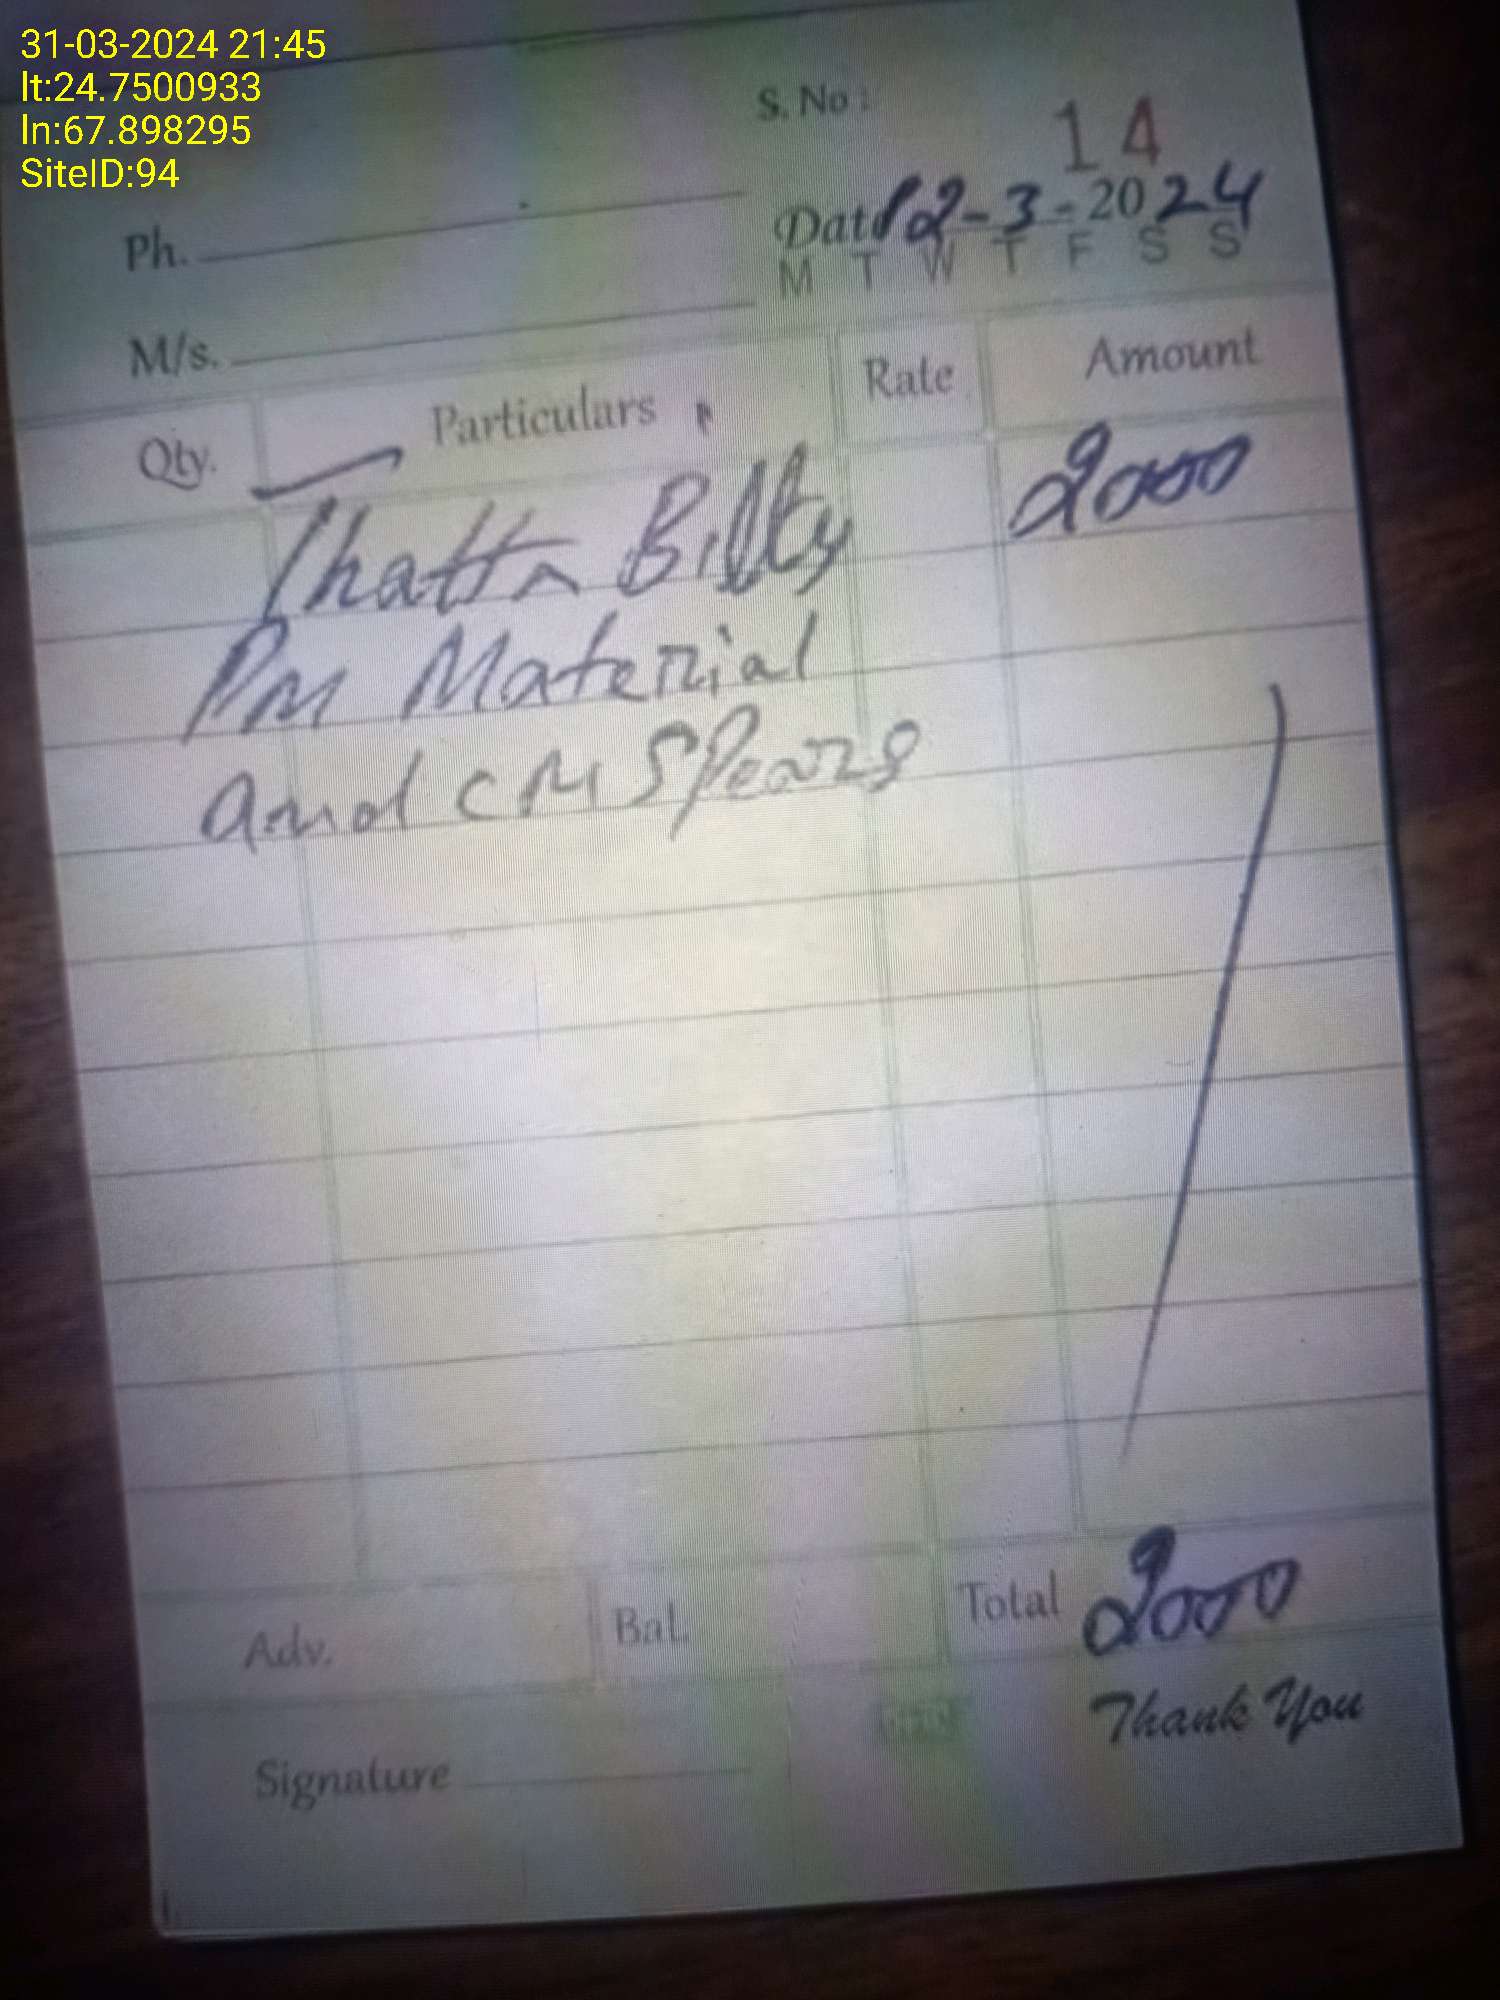 31-03-2024 21:45
lt:24.7500933
ln:67.898295
SiteID:94
S. No : 14
Ph.
Date 12-3-2024
M T W T F S S
M/s.
Qty. Particulars Rate Amount
Thatta Bilty 2000
PM Material
and CM SPears
Adv. Bal. Total 2000
Thank You
Signature